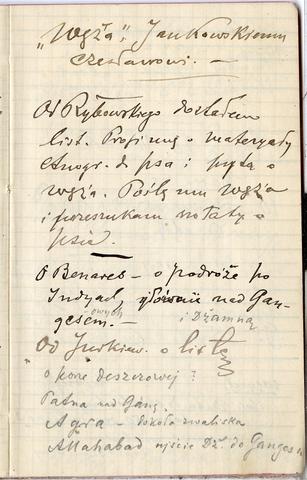 "Węża", Jankowskiemu
Czesławowi. —
Od Rybowskiego dostałem
list. Prosi mię o materyały
etnogr. do psa i pyta o
węża. Poślę mu węża
i przeszukam notaty o
psie.
O Benares — o podróże po
Indyach, głównie nad Gan-
gesem. — owych i Dżamną
Od Jurkiew. o listę
o porę deszczowej?
Patna nad Gang.
Agra — dokoła zwaliska
Allahabad ujście Dż. do Gangesu